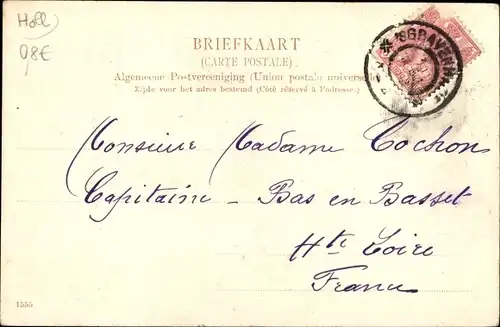 Holl
98€
BRIEFKAART
(CARTE POSTALE)
Algemeene Postvereeniging (Union postale universelle)
Zijde voor het adres bestemd (Côté réservé à l'adresse.)
Monsieur Madame Cochon
Capitaine - Bas en Basset
Hte Loire
France
1555